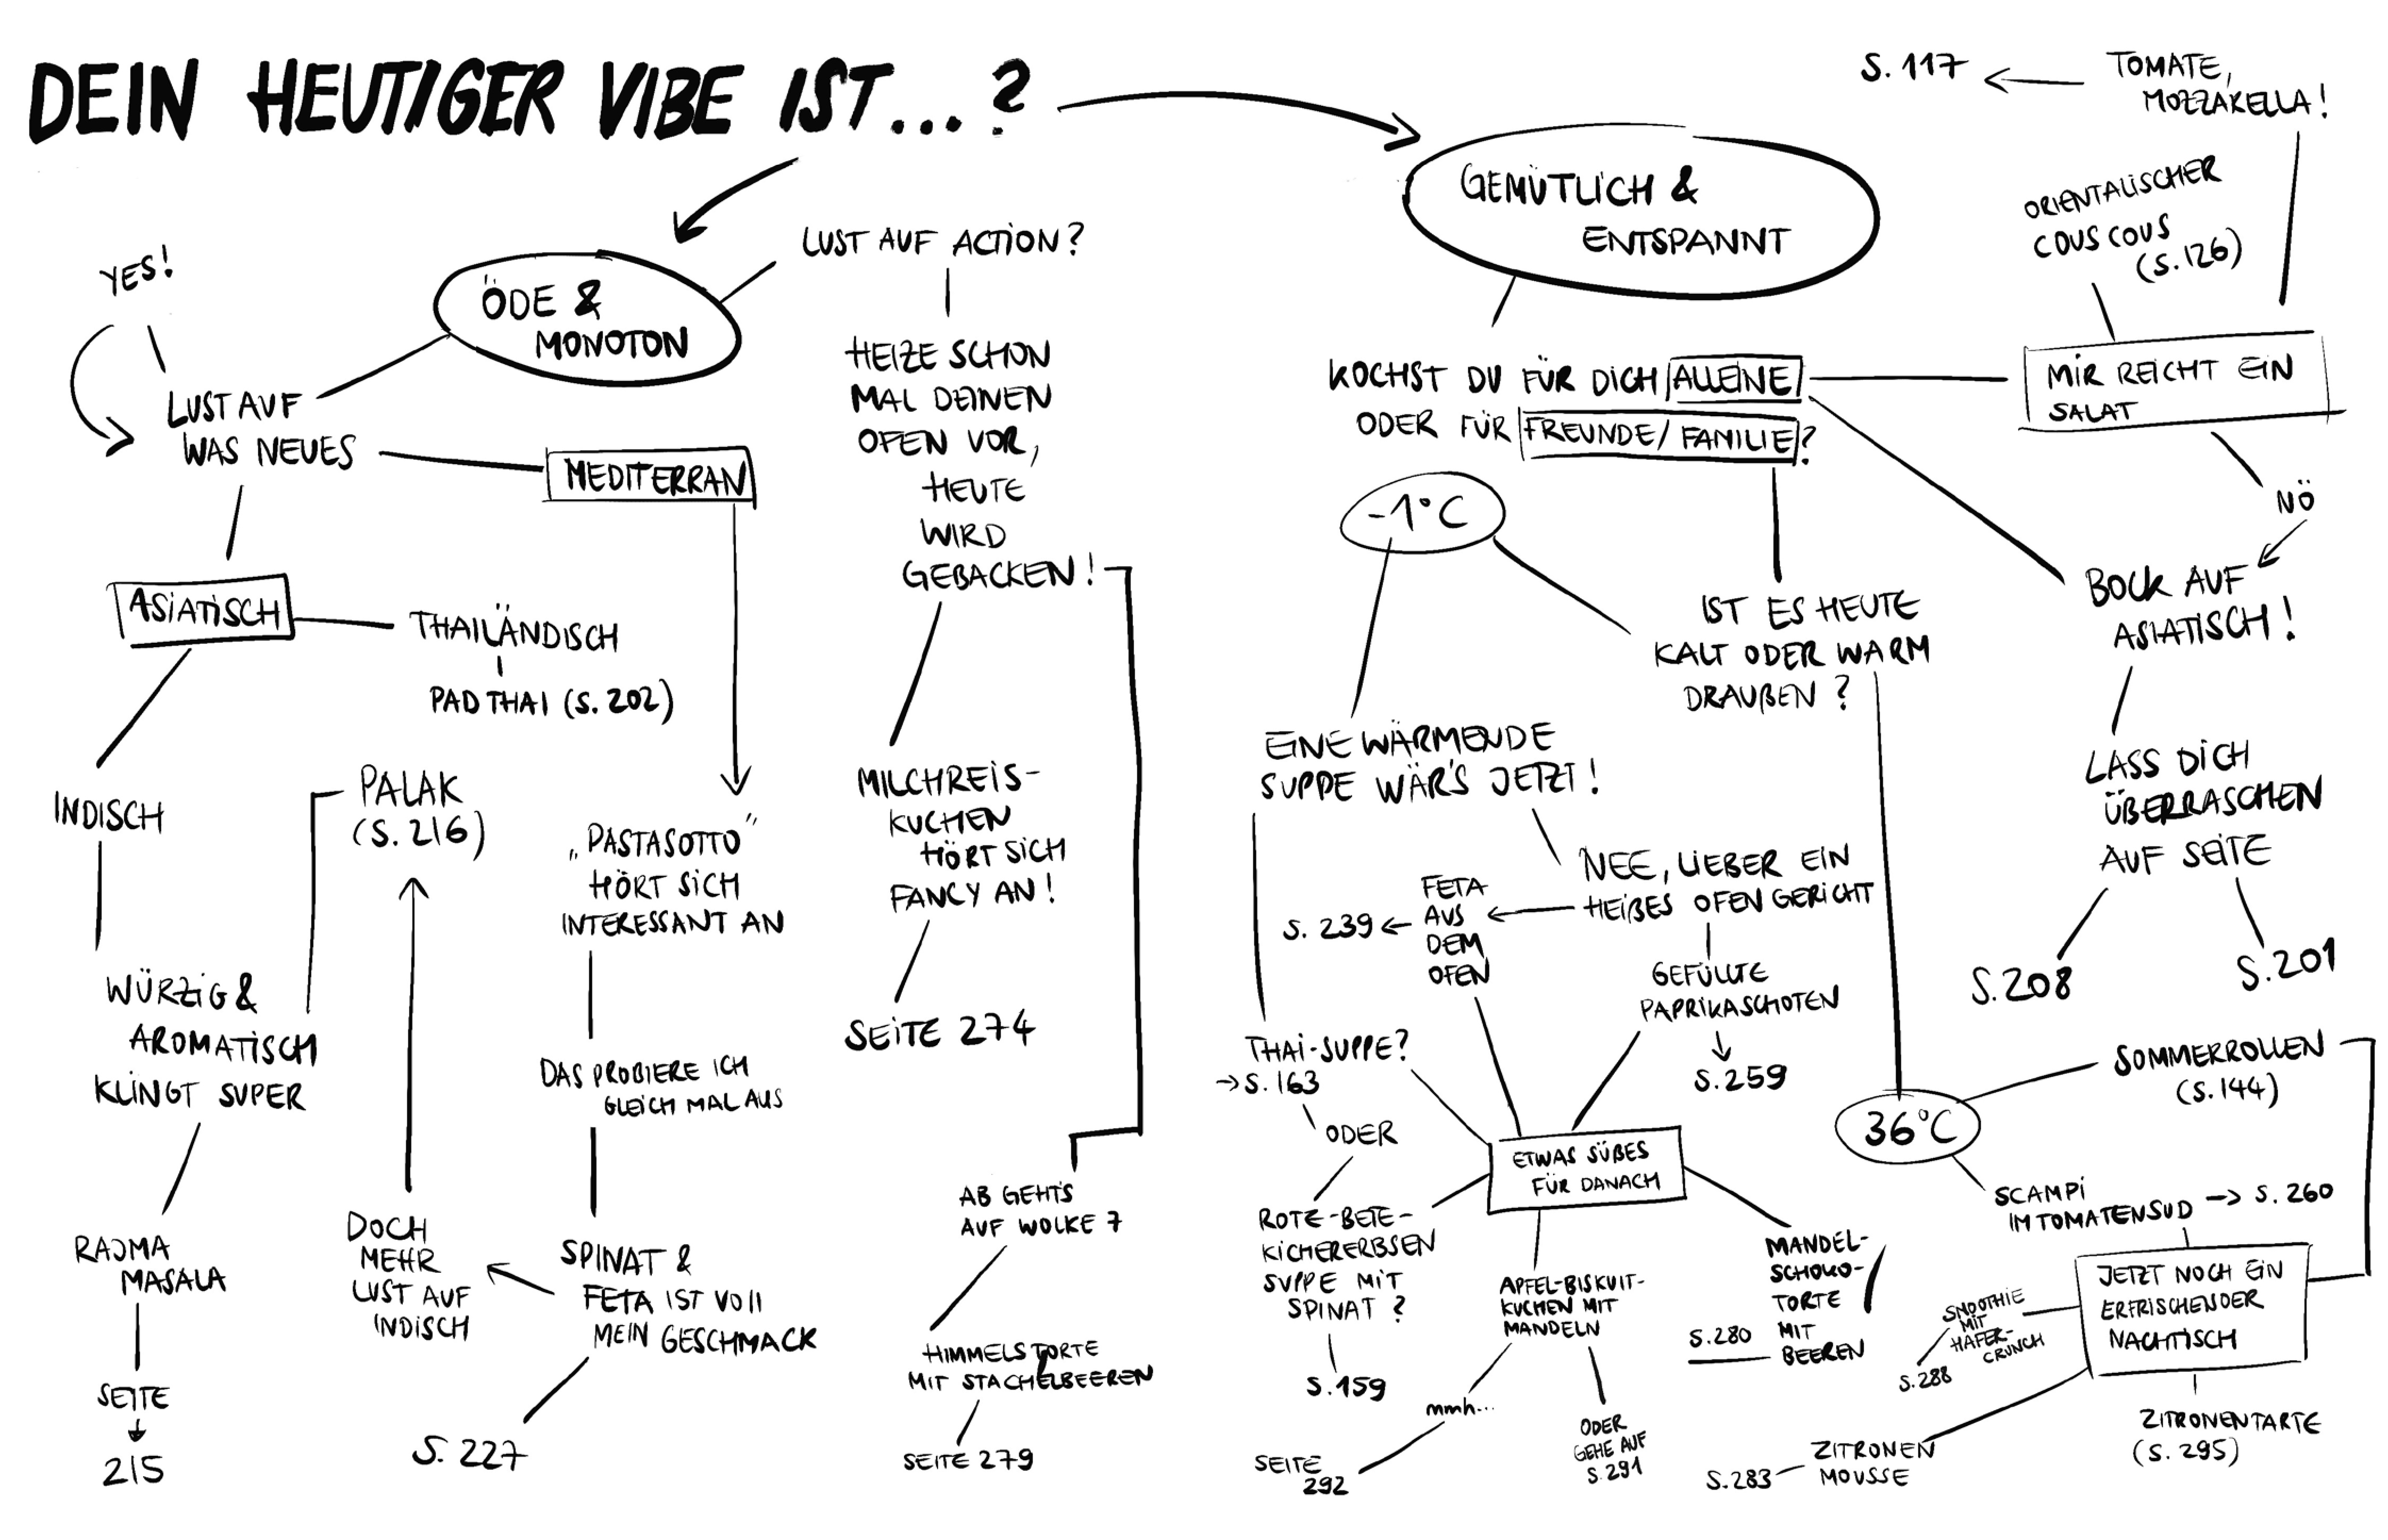 DEIN HEUTIGER VIBE IST...?
YES!
ÖDE &
MONOTON
LUST AUF
WAS NEUES
MEDITERRAN
ASIATISCH
THAILÄNDISCH
PAD THAI (S. 202)
INDISCH
PALAK
(S. 216)
WÜRZIG &
AROMATISCH
KLINGT SUPER
RAJMA
MASALA
SEITE
215
DOCH
MEHR
LUST AUF
INDISCH
„PASTASOTTO"
HÖRT SICH
INTERESSANT AN
DAS PROBIERE ICH
GLEICH MAL AUS
SPINAT &
FETA IST VOll
MEIN GESCHMACK
S. 227
LUST AUF ACTION?
HEIZE SCHON
MAL DEINEN
OFEN VOR,
HEUTE
WIRD
GEBACKEN!
MILCHREIS-
KUCHEN
HÖRT SICH
FANCY AN!
SEITE 274
AB GEHTS
AUF WOLKE 7
HIMMELSTORTE
MIT STACHELBEEREN
SEITE 279
GEMÜTLICH &
ENTSPANNT
KOCHST DU FÜR DICH ALLEINE
ODER FÜR FREUNDE/FAMILIE?
-1°C
IST ES HEUTE
KALT ODER WARM
DRAUßEN?
EINE WÄRMENDE
SUPPE WÄR'S JETZT!
NEE, LIEBER EIN
HEIßES OFEN GERICHT
FETA
AUS
DEM
OFEN
S. 239
GEFÜLLTE
PAPRIKASCHOTEN
S. 259
THAI-SUPPE?
→ S. 163
ODER
ROTE-BETE-
KICHERERBSEN
SUPPE MIT
SPINAT?
S. 159
ETWAS SÜßES
FÜR DANACH
APFEL-BISKUIT-
KUCHEN MIT
MANDELN
mmh...
SEITE
292
ODER
GEHE AUF
S. 291
MANDEL-
SCHOKO-
TORTE
MIT
BEEREN
S. 280
S. 117
TOMATE,
MOZZARELLA!
ORIENTALISCHER
COUSCOUS
(S. 126)
MIR REICHT EIN
SALAT
NÖ
BOCK AUF
ASIATISCH!
LASS DICH
ÜBERRASCHEN
AUF SEITE
S. 208
S. 201
36°C
SOMMERROLLEN
(S. 144)
SCAMPI
IM TOMATENSUD → S. 260
JETZT NOCH EIN
ERFRISCHENDER
NACHTISCH
SMOOTHIE
MIT
HAFER-
CRUNCH
S. 288
ZITRONEN
MOUSSE
S. 283
ZITRONENTARTE
(S. 295)